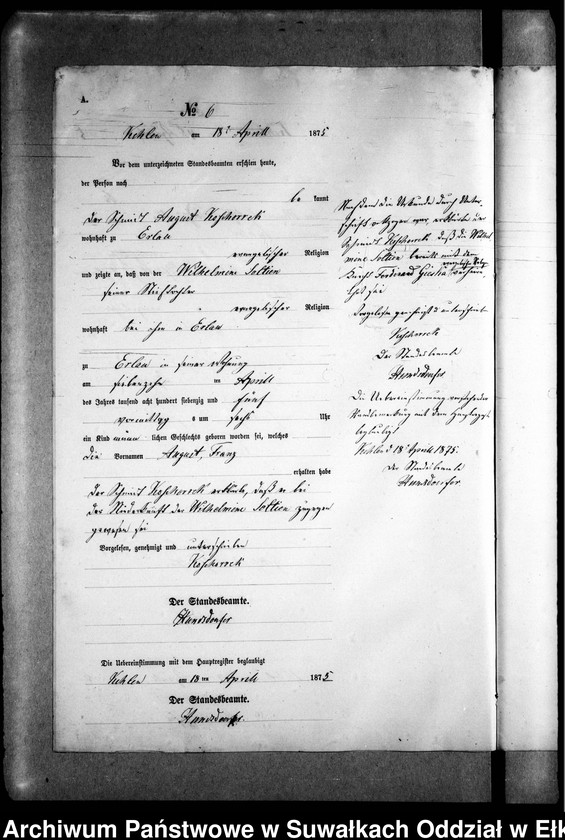 A.
№ 6
Kehlen am 18ten April 1875
Vor dem unterzeichneten Standesbeamten erschien heute,
der Person nach
be kannt
der Schmidt August Koschorrek
wohnhaft zu Erlau
evangelischer Religion
und zeigte an, daß von der Wilhelmine Soltien
seiner Stieftochter
evangelischer Religion
wohnhaft bei ihm in Erlau
zu Erlau in seiner Wohnung
am siebenzehn ten April
des Jahres tausend acht hundert siebenzig und fünf
vormittag s um sechs Uhr
ein Kind männ lichen Geschlechts geboren worden sei, welches
die Vornamen August, Franz
erhalten habe
Der Schmidt Koschorrek erklärte, daß er bei
der Niederkunft der Wilhelmine Soltien zugegen
gewesen sei
Vorgelesen, genehmigt und unterschrieben
Koschorrek
Der Standesbeamte.
Die Uebereinstimmung mit dem Hauptregister beglaubigt
Kehlen am 18 ten April 1875
Der Standesbeamte.
Nachdem die Urkunde durch Unter-
schrift vollzogen war, erklärte der
Schmidt Koschorrek, daß die Wilhel
mine Soltien bereits mit dem
Knecht Ferdinand
Vorgelesen genehmigt u unterschrieben
Koschorrek
Der Standesbeamte
Die Uebereinstimmung vorstehender
Randbemerkung mit dem Hauptregister
beglaubigt
Kehlen d 18ten April 1875.
Der Standesbeamte
Archiwum Państwowe w Suwałkach Oddział w Ełk